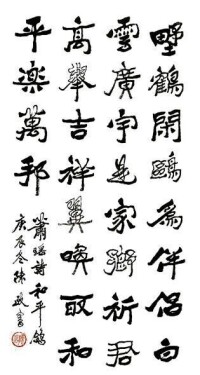 野鶴閑鷗為伴侶白
雲廣宇是家鄉祈君
高舉吉祥翼喚取和
平樂萬邦
詩和平鴿
庚辰冬陳政書